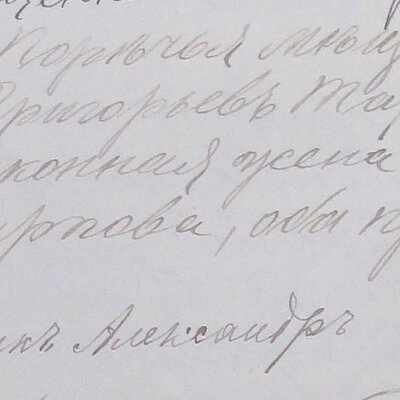 Порѣчья мѣщ
Григорьевъ Та
конная жена
рпова, оба п
икъ Александръ